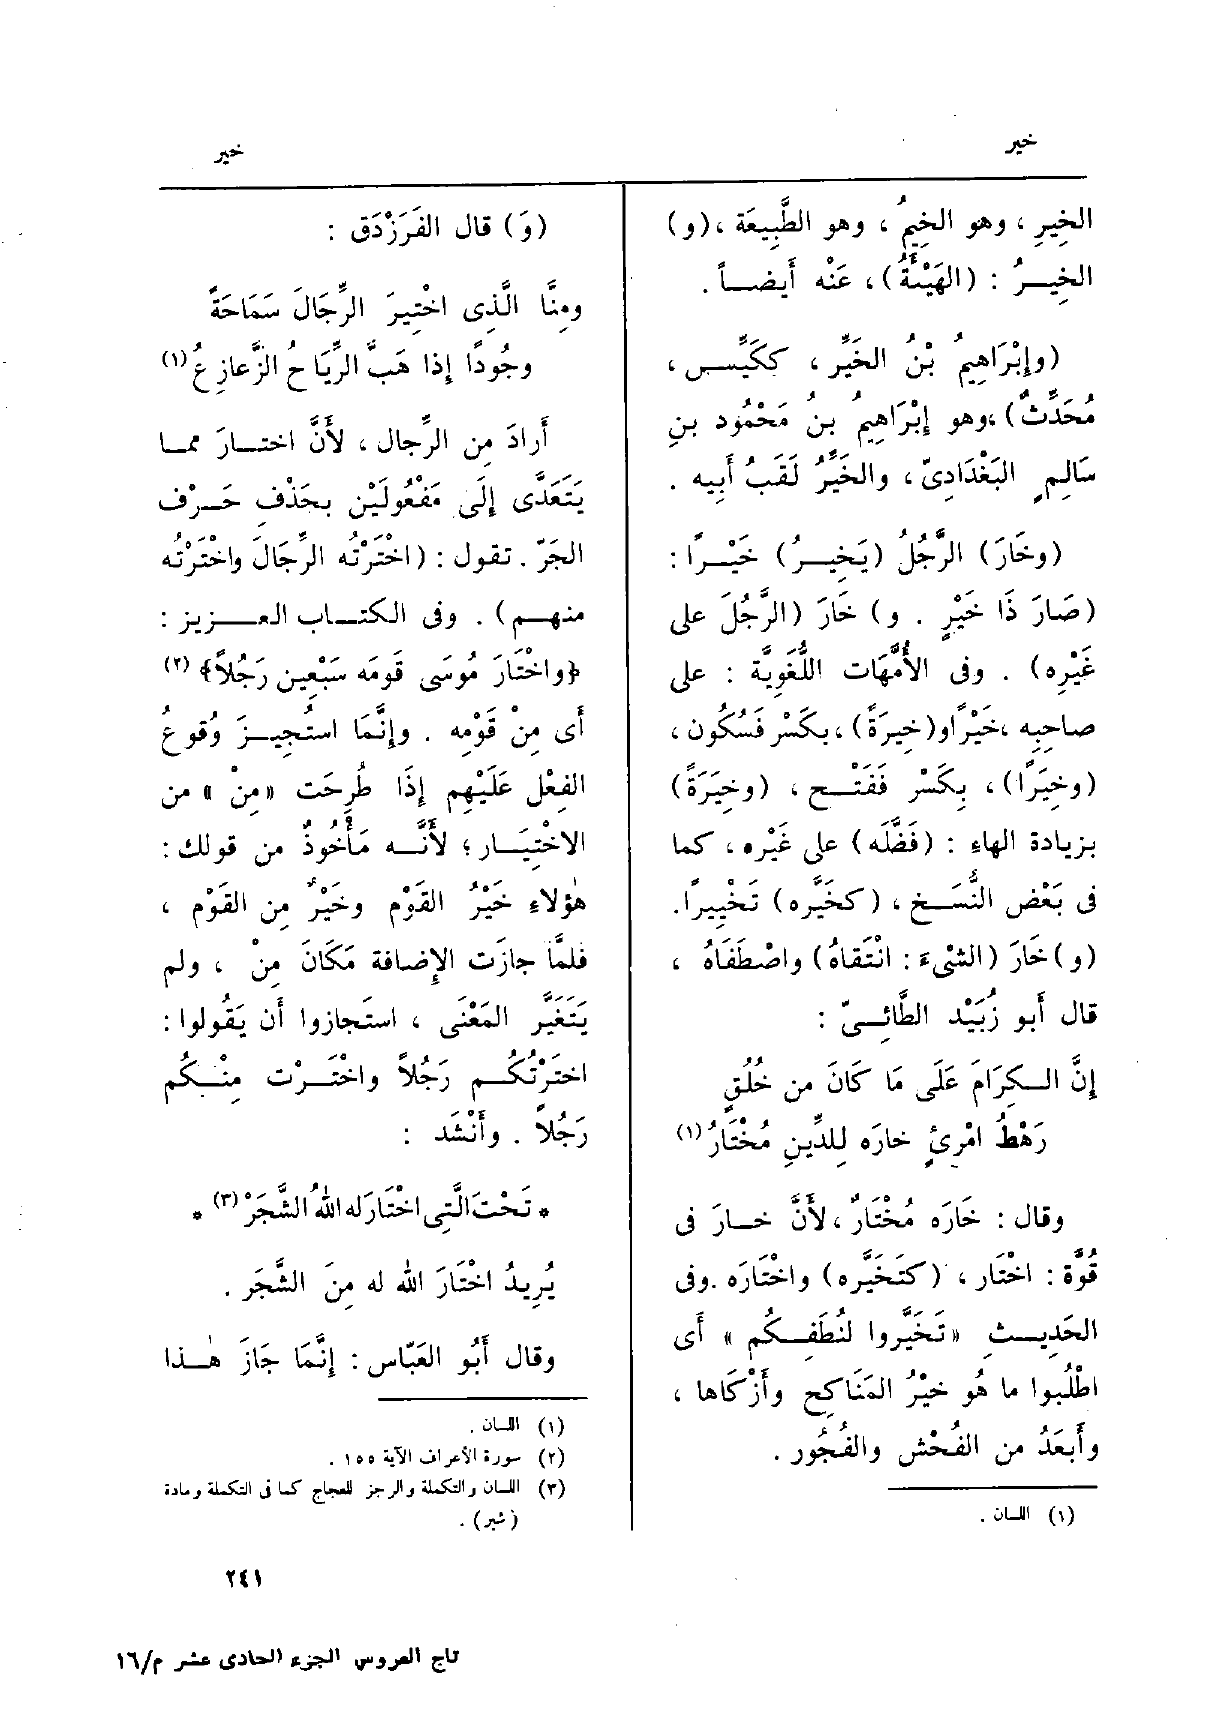 خير
خير
الخِيرِ ، وهو الخِيمُ ، وهو الطَّبِيعَة ، (و)
الخِيــرُ : (الهَيْئَةُ) ، عَنْه أَيضــاً .
(وإِبْرَاهِيمُ بْنُ الخَيِّرِ ، ككَيِّــس ،
مُحَدِّثٌ) ، وهو إِبْرَاهِيمُ بنُ مَحْمُود بنِ
سَالِمٍ البَغْدَادِىّ ، والخَيِّرُ لَقَبُ أَبِيه .
(وخَارَ) الرَّجُلُ (يَخِيــرُ) خَيْــرًا :
(صَارَ ذَا خَيْرٍ . و) خَارَ (الرَّجُلَ على
غَيْرِه) . وفى الأُمَّهَات اللُّغَوِيَّة : على
صاحِبِه ، خَيْرًا و(خِيرَةً) ، بكَسْر فَسُكُون ،
(وخِيَرًا) ، بِكَسْر فَفَتْــح ، (وخِيَرَةً)
بزيادة الهاءِ : (فَضَّلَه) على غَيْرِه ، كما
فى بَعْض النُّسَــخ ، (كخَيَّره) تَخْيِيرًا.
(و) خَارَ (الشْىءَ : انْتَقاهُ) واصْطَفَاهُ ،
قال أَبو زُبَيْد الطَّائِــىّ :
إِنَّ الــكِرَامَ عَلَى مَا كَانَ من خُلُقٍ
رَهْطُ امْرِئٍ خارَه لِلدِّينِ مُخْتَارُ (١)
وقال : خَارَه مُخْتَارٌ ، لأَنَّ خــارَ فى
قُوَّة : اخْتَار ، (كتَخَيَّره) واخْتَارَه .وفى
الحَدِيــثِ «تَخَيَّروا لنُطَفِــكم » أَى
اطْلُبوا ما هُو خيْرُ المَنَاكح وأَزْكَاها ،
وأَبعَدُ من الفُحْش والفُجُور .
(١) اللسان .
(وَ) قال الفَرَزْدَق :
ومِنَّا الَّذِى اخْتِيرَ الرِّجَالَ سَمَاحَةً
وجُودًا إِذا هَبَّ الرِّيَاحُ الزَّعازِعُ (١)
أَرادَ مِن الرِّجال ، لأَنَّ اختــارَ ممــا
يَتَعَدَّى إِلَى مَفْعُولَيْن بحَذْفِ حَــرْف
الجَرّ . تقول : (اخْتَرْتُه الرِّجَالَ واخْتَرْتُه
منهــم) . وفى الكتــاب العــزيز :
﴿واخْتَارَ مُوسَى قَومَه سَبْعِين رَجُلاً﴾ (٢)
أَى مِنْ قَوْمِه . وإِنَّمَا استُجِيــزَ وُقوعُ
الفِعْل عَلَيْهِم إِذَا طُرِحَت «مِنْ » من
الاخْتِيَــار ؛ لأَنَّــه مَأْخُوذٌ من قولك :
هٰؤلاءِ خَيْرُ القَوْم وخَيْرٌ مِن القَوْم ،
فلمَّا جازَت الإِضافة مَكَانَ مِنْ ، ولم
يَتَغَيَّر المَعْنَى ، استَجازوا أَن يَقُولوا :
اختَرْتُكُــم رَجُلاً واخْتَــرْت مِنْــكُم
رَجُلاً . وأَنْشَد :
* تَحْتَ الَّتِى اخْتَارَ له اللهُ الشَّجَرْ (٣) *
يُرِيدُ اخْتَارَ الله له مِنَ الشَّجَر .
وقال أَبُو العَبّاس : إِنَّمَا جَازَ هٰــذا
(١) اللسان .
(٢) سورة الأعراف الآية ١٥٥ .
(٣) اللسان والتكملة والرجز للعجاج كما فى التكملة ومادة
(شبر) .
٢٤١
تاج العروس الجزء الحادى عشر م/١٦